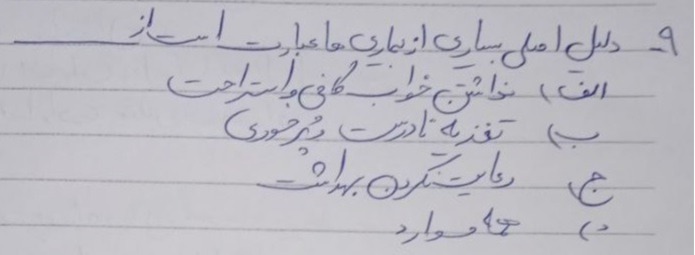 ۹- دلیل اصلی بسیاری از بیماری ها عبارت است از ______
الف) نداشتن خواب کافی و استراحت
ب) تغذیه نادرست و پرخوری
ج) رعایت نکردن بهداشت
د) همه موارد